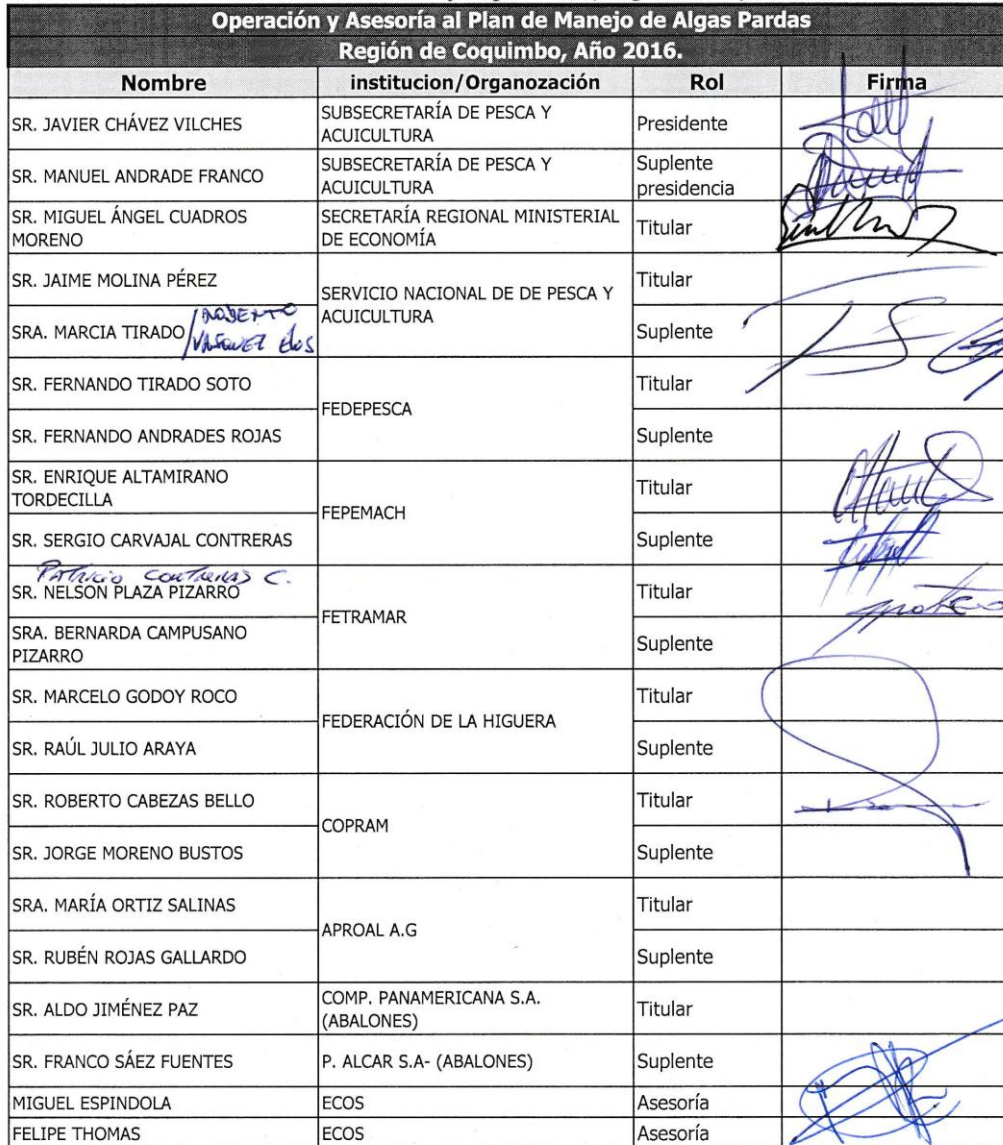 Operación y Asesoría al Plan de Manejo de Algas Pardas
Región de Coquimbo, Año 2016.
Nombre institucion/Organozación Rol Firma
SR. JAVIER CHÁVEZ VILCHES SUBSECRETARÍA DE PESCA Y ACUICULTURA Presidente
SR. MANUEL ANDRADE FRANCO SUBSECRETARÍA DE PESCA Y ACUICULTURA Suplente presidencia
SR. MIGUEL ÁNGEL CUADROS MORENO SECRETARÍA REGIONAL MINISTERIAL DE ECONOMÍA Titular
SR. JAIME MOLINA PÉREZ SERVICIO NACIONAL DE DE PESCA Y ACUICULTURA Titular
SRA. MARCIA TIRADO / ROBERTO Suplente
SR. FERNANDO TIRADO SOTO FEDEPESCA Titular
SR. FERNANDO ANDRADES ROJAS Suplente
SR. ENRIQUE ALTAMIRANO TORDECILLA FEPEMACH Titular
SR. SERGIO CARVAJAL CONTRERAS Suplente
Patricio Contreras C.
SR. NELSON PLAZA PIZARRO FETRAMAR Titular
SRA. BERNARDA CAMPUSANO PIZARRO Suplente
SR. MARCELO GODOY ROCO FEDERACIÓN DE LA HIGUERA Titular
SR. RAÚL JULIO ARAYA Suplente
SR. ROBERTO CABEZAS BELLO COPRAM Titular
SR. JORGE MORENO BUSTOS Suplente
SRA. MARÍA ORTIZ SALINAS APROAL A.G Titular
SR. RUBÉN ROJAS GALLARDO Suplente
SR. ALDO JIMÉNEZ PAZ COMP. PANAMERICANA S.A. (ABALONES) Titular
SR. FRANCO SÁEZ FUENTES P. ALCAR S.A- (ABALONES) Suplente
MIGUEL ESPINDOLA ECOS Asesoría
FELIPE THOMAS ECOS Asesoría